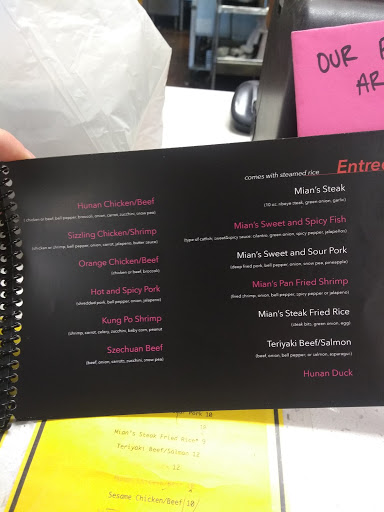 OUR
AR
Entree
comes with steamed rice
Hunan Chicken/Beef
(chicken or beef, bell pepper, broccoli, onion, carrot, zucchini, snow pea)
Sizzling Chicken/Shrimp
(chicken or shrimp, bell pepper, onion, carrot, jalapeno, butter sauce)
Orange Chicken/Beef
(chicken or beef, broccoli)
Hot and Spicy Pork
(shredded pork, bell pepper, onion, jalapeno)
Kung Po Shrimp
(shrimp, carrot, celery, zucchini, baby corn, peanut)
Szechuan Beef
(beef, onion, carrots, zucchini, snow pea)
Mian's Steak
(10 oz. ribeye steak, green onion, garlic)
Mian's Sweet and Spicy Fish
(type of catfish, sweet/spicy sauce, cilantro, green onion, spicy pepper, jalapeños)
Mian's Sweet and Sour Pork
(deep fried pork, bell pepper, onion, snow pea, pineapple)
Mian's Pan Fried Shrimp
(fried shrimp, onion, bell pepper, spicy pepper or jalapeno)
Mian's Steak Fried Rice
(steak bits, green onion, egg)
Teriyaki Beef/Salmon
(beef, onion, bell pepper, or salmon, asparagus)
Hunan Duck
Pork 10
Mian's Steak Fried Rice* 9
Teriyaki Beef/Salmon 12
12
Sesame Chicken/Beef 10/